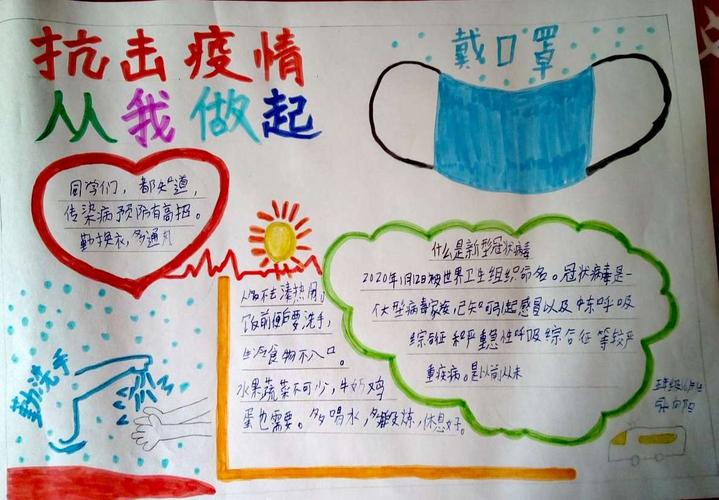 抗击疫情
从我做起
戴口罩
同学们，都知道，
传染病预防有高招。
勤换衣，多通风
人多不去凑热闹。
饭前便后要洗手，
生冷食物不入口。
水果蔬菜不可少，牛奶鸡
蛋也需要。多喝水，多锻炼，休息好。
什么是新型冠状病毒
2020年1月12日被世界卫生组织命名。冠状病毒是一
个大型病毒家族，已知可引起感冒以及中东呼吸
综合征和严重急性呼吸综合征等较严
重疾病。是以前从未
勤洗手